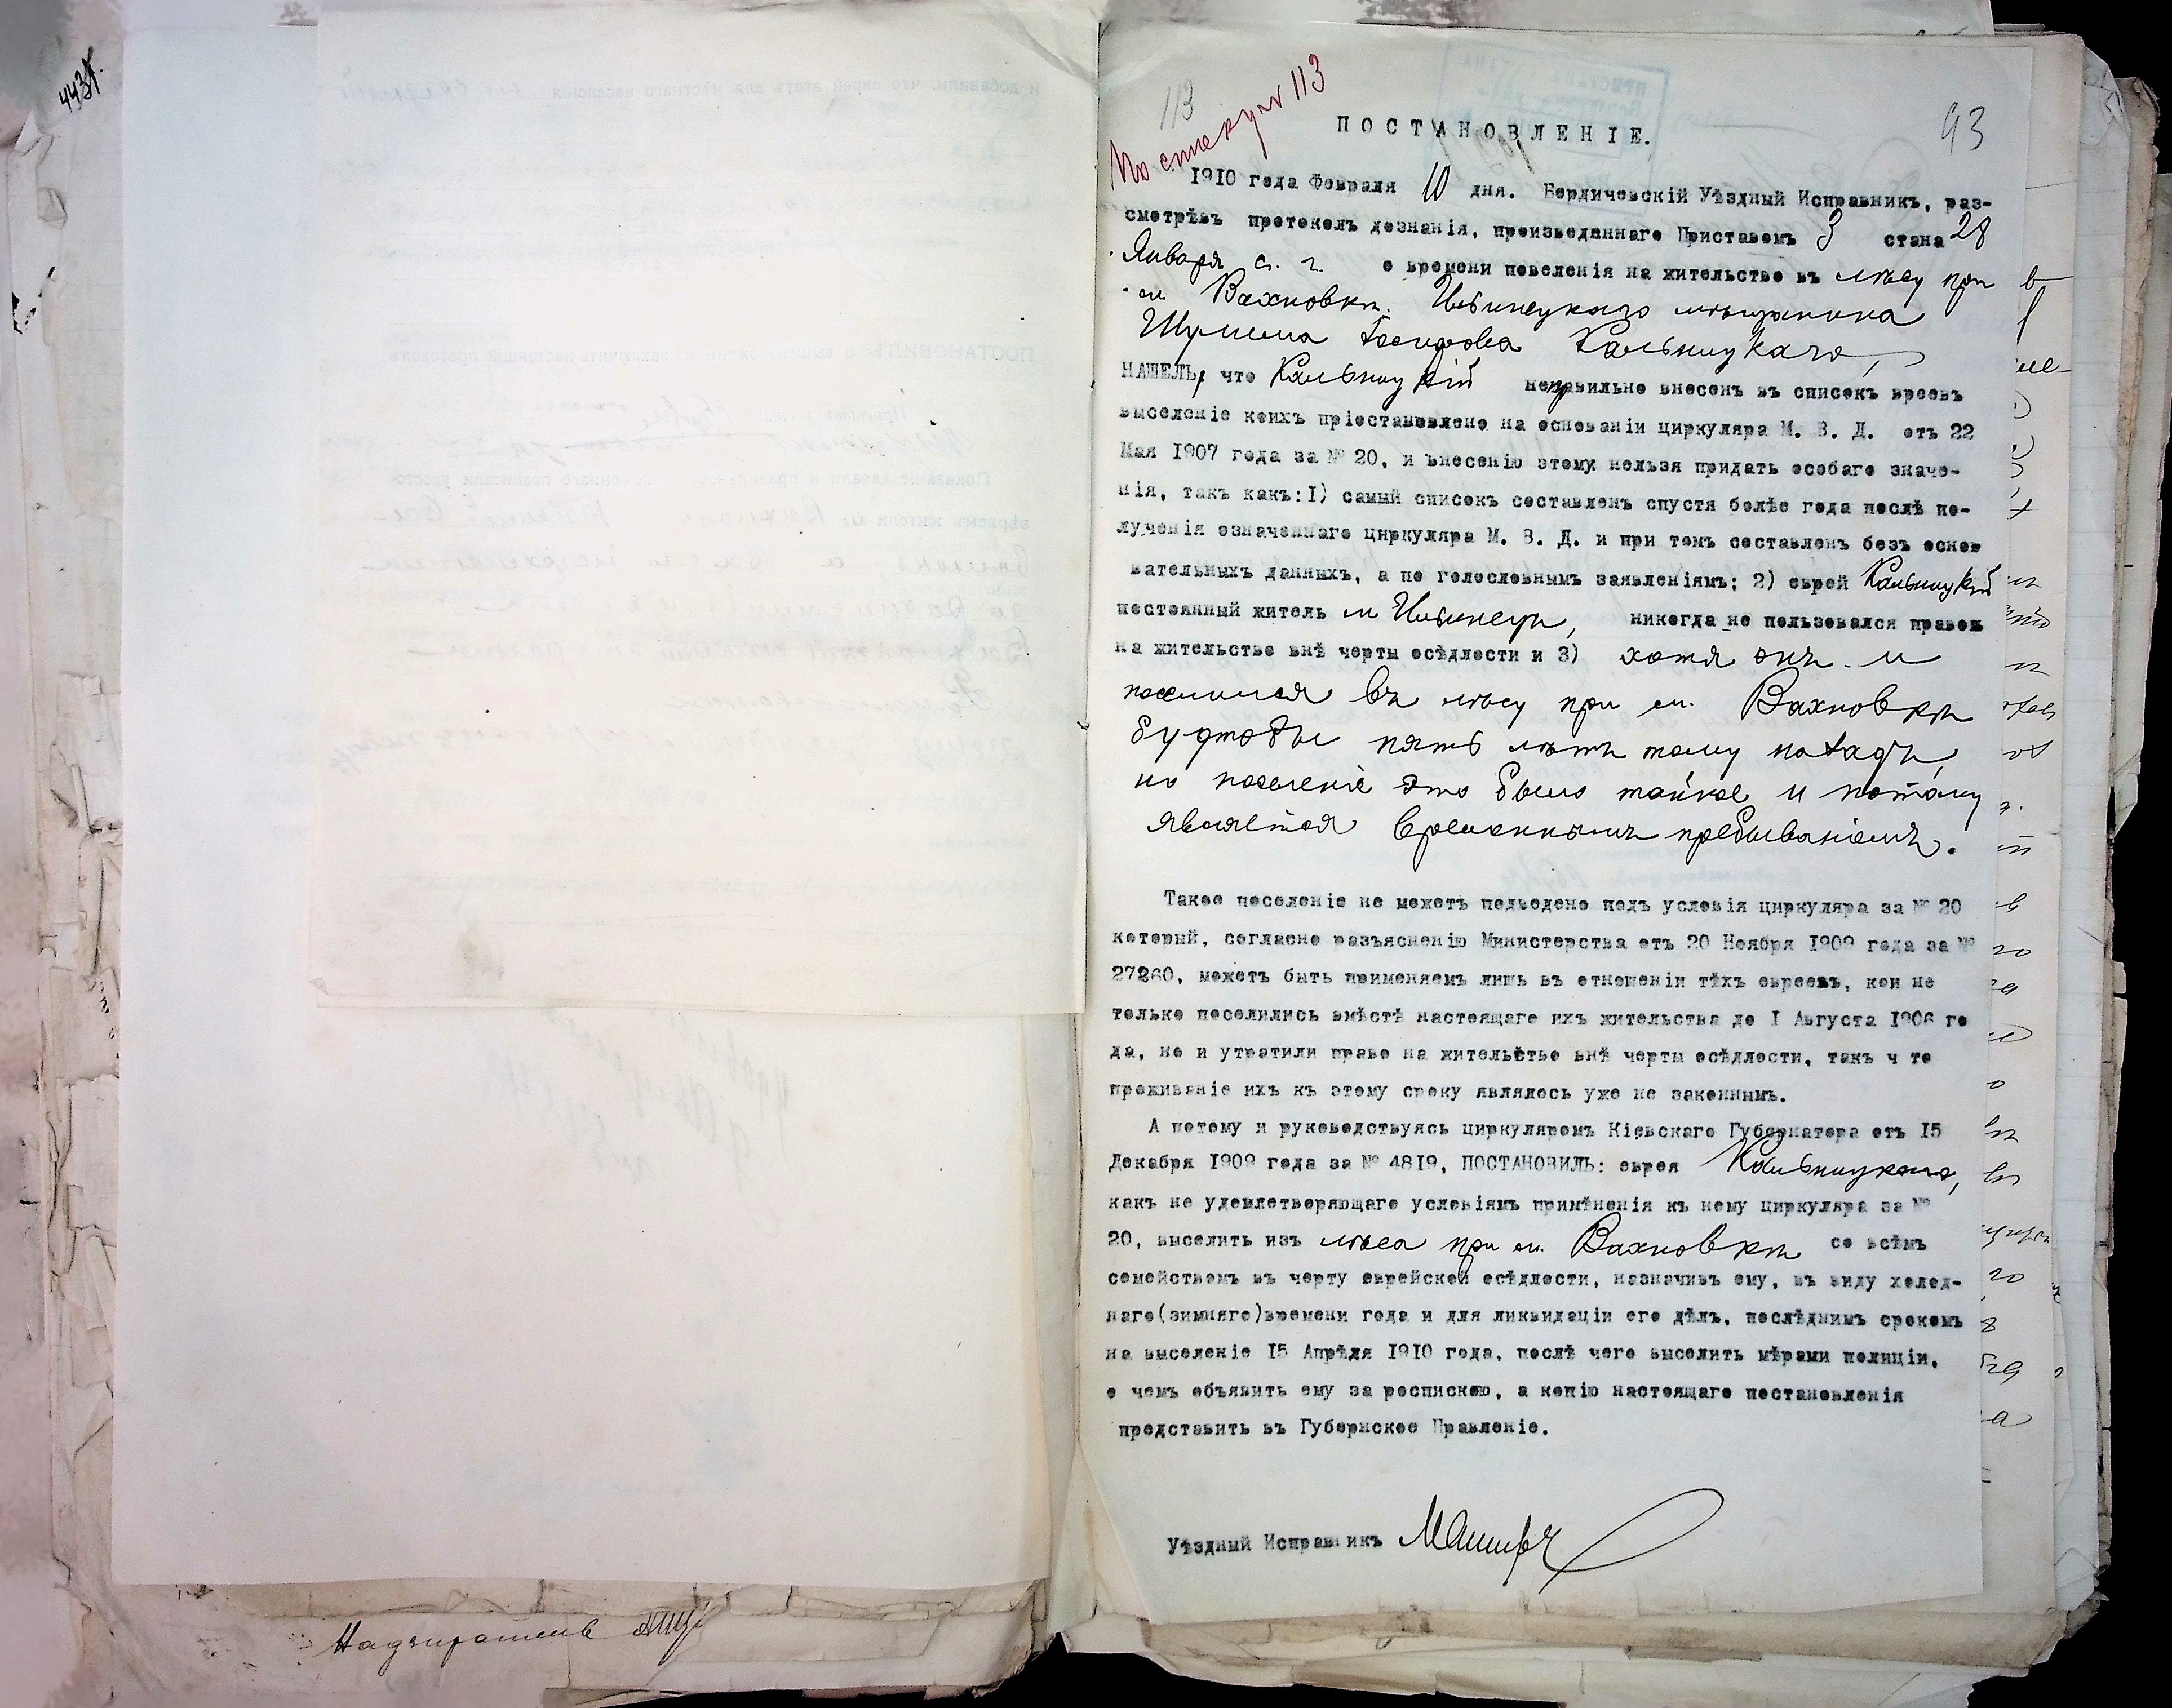 113
По списку № 113
93
ПОСТАНОВЛЕНІЕ.
1910 года Февраля 10 дня. Бердичевскій Уѣздный Исправникъ, раз-
смотрѣвъ протоколъ дознанія, произведеннаго Приставомъ 3 стана 28
Января с. г. о времени поселенія на жительство въ лѣсу при
м. Вахновкѣ. Ильинецкаго мѣщанина
Шулима Кальницкаго,
НАШЕЛЪ, что Кальницкій неправильно внесенъ въ списокъ вреевъ
выселеніе коихъ пріостановлено на основаніи циркуляра М. В. Д. отъ 22
Мая 1907 года за № 20, и внесенію этому нельзя придать особаго значе-
нія, такъ какъ: I) самый списокъ составленъ спустя болѣе года послѣ по-
лученія означеннаго циркуляра М. В. Д. и при томъ составленъ безъ основ
вательныхъ данныхъ, а по голословнымъ заявленіямъ; 2) еврей Кальницкій
постоянный житель м Ильинецъ, никогда не пользовался правом
на жительство внѣ черты осѣдлости и 3) хотя онъ и
поселился въ лѣсу при м. Вахновкѣ
будтобы пять лѣтъ тому назадъ,
но поселеніе это было тайное и потому
является временнымъ пребываніемъ.
Такое поселеніе не можетъ подведено подъ условія циркуляра за № 20
который, согласно разъясненію Министерства отъ 20 Ноября 1909 года за №
27260, можетъ быть примѣняемъ лишь въ отношеніи тѣхъ евреевъ, кои не
только поселились вмѣстѣ настоящаго ихъ жительства до I Августа 1906 го
да, но и утратили право на жительство внѣ черты осѣдлости, такъ ч то
проживаніе ихъ къ этому сроку являлось уже не законнымъ.
А потому и руководствуясь циркуляромъ Кіевскаго Губернатора отъ 15
Декабря 1909 года за № 4819, ПОСТАНОВИЛЪ: еврея Кальницкаго,
какъ не удовлетворяющаго условіямъ примѣненія къ нему циркуляра за №
20, выселить изъ лѣса при м. Вахновкѣ со всѣмъ
семействомъ въ черту еврейской осѣдлости, назначивъ ему, въ виду холод-
наго(зимняго)времени года и для ликвидаціи его дѣлъ, послѣднимъ срокомъ
на выселеніе 15 Апрѣля 1910 года, послѣ чего выселить мѣрами полиціи,
о чемъ объявить ему за роспискою, а копію настоящаго постановленія
представить въ Губернское Правленіе.
Уѣздный Исправникъ
Надзиратель